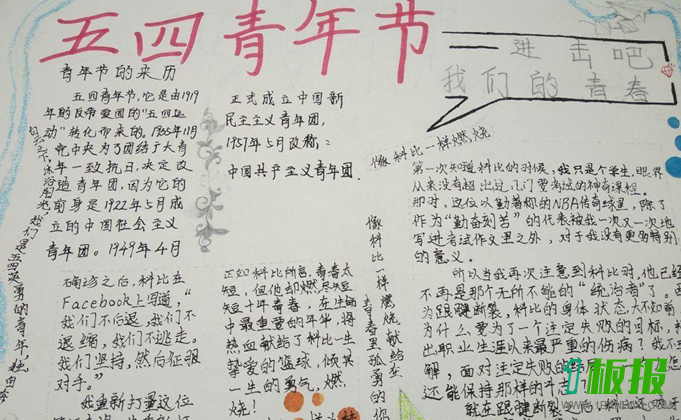 五四青年节
进击吧
我们的青春
青年节的来历
五四青年节,它是由1919
年的反帝爱国的“五四运
动”转化而来的。1935年11月
党中央为了团结广大青
年一致抗日,决定改
造青年团,因为它的
前身是1922年5月成
立的中国社会主义
青年团。1949年4月
正式成立中国新
民主主义青年团,
1957年5月改称:
中国共产主义青年团
我们是五四
的青年,独自奔
像科比一样燃烧
第一次知道科比的时候,我只是个学生,眼界
从来没有超出过几门要考试的神奇课程。
那时,这位以勤著称的NBA传奇球星,除了
作为“勤奋刻苦”的代表被我一次又一次地
写进考试作文里之外,对于我没有更多特别
的意义。
所以当我再次注意到科比时,他已经
不再是那个无所不能的“统治者”了。因
为跟腱断裂,科比的身体状态,大不如前
为什么要为了一个注定失败的目标,
出职业生涯以来最严重的伤病?我不
解,面对注定失败的结局
还能保持那样的斗志
就在跟腱断裂
像科比一样燃烧
确诊之后,科比在
Facebook上写道,“
我们不后退,我们不
退缩,我们不逃走。
我们坚持,然后征服
对手。”
我重新打量这位
正如科比所言,青春太
短,但他却燃尽短
短十年青春,在生命
中最重要的年华,将
热血献给了科比一生
挚爱的篮球,倾其
一生的勇气,燃
烧!
板报